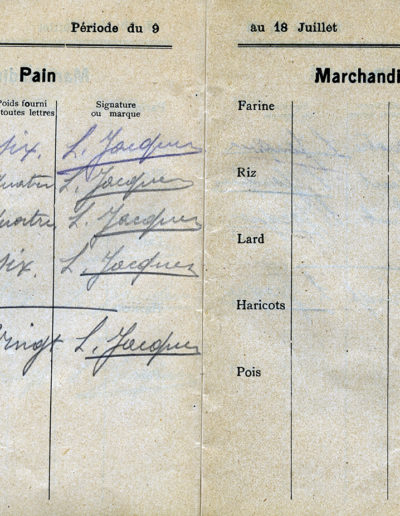 Période du 9
Pain
Poids fourni
toutes lettres
Signature
ou marque
Six. L. Jacques
quatre L. Jacques
quatre L. Jacques
Six. L. Jacques
Vingt L. Jacques
au 18 Juillet
Marchandi
Farine
Riz
Lard
Haricots
Pois